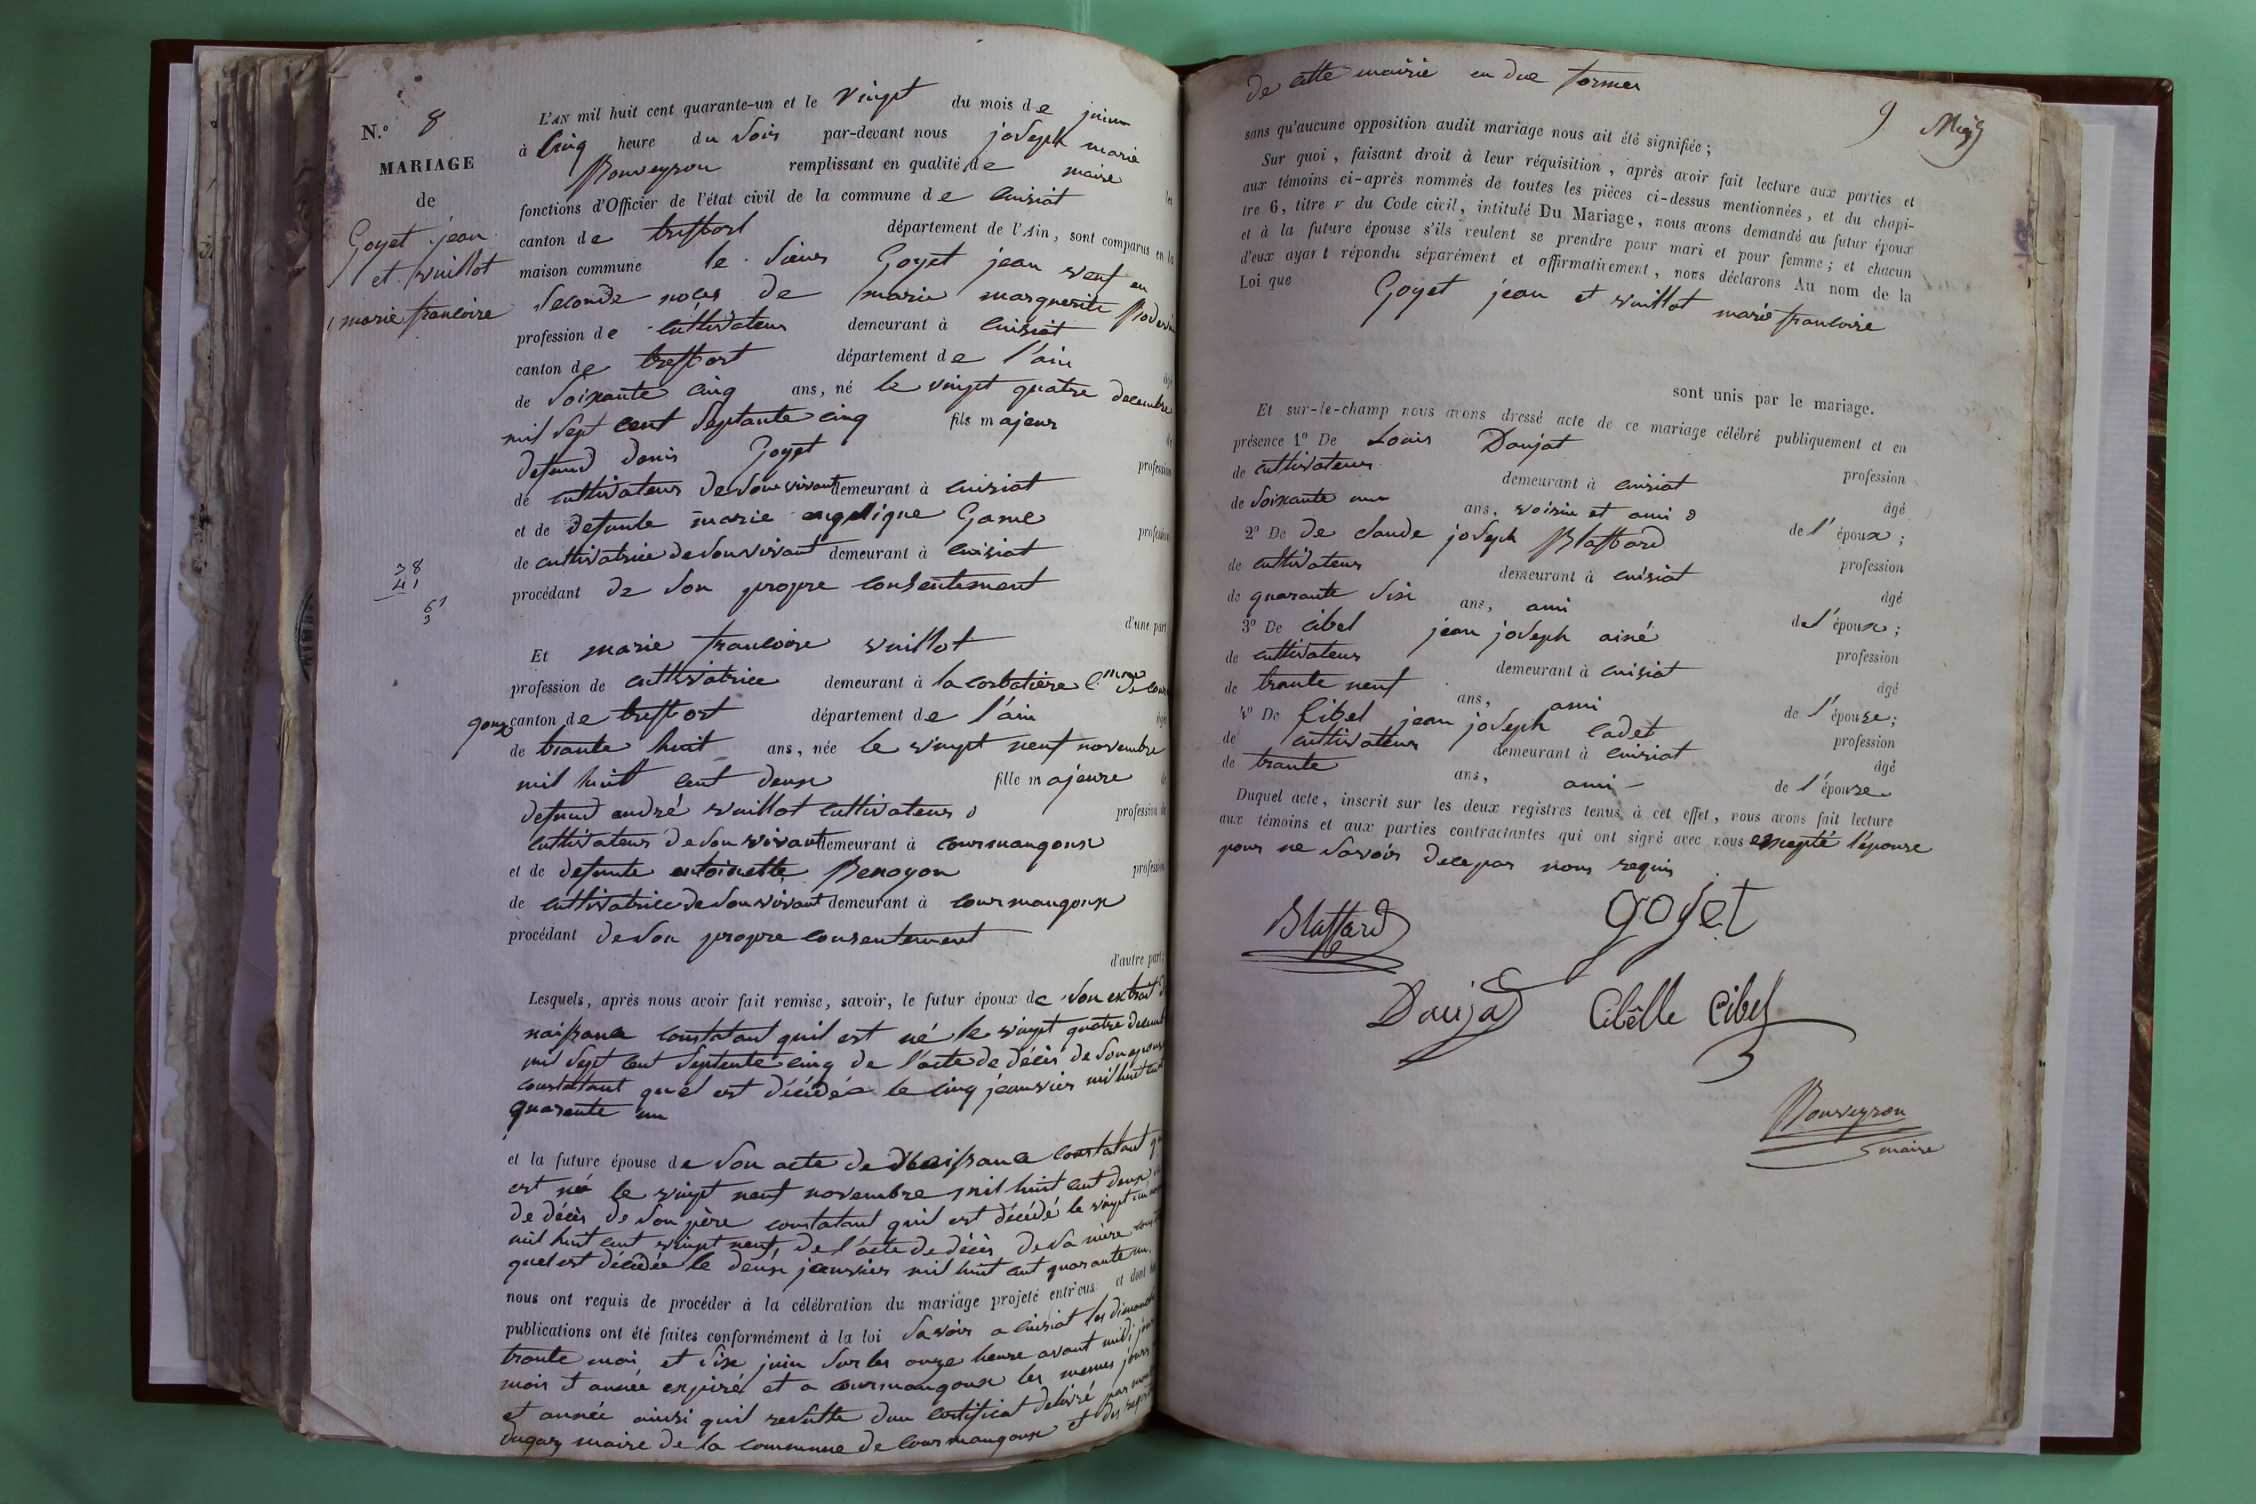 N.º 8
MARIAGE
de
Goyet jean
et vuillot
marie francoise
38
41
61
3
L'AN mil huit cent quarante-un et le vingt du mois de juin
à cinq heure du soir par-devant nous joseph marie
Rouveyron remplissant en qualité de maire les
fonctions d'Officier de l'état civil de la commune de cuisiat
canton de treffort département de l'Ain, sont comparus en la
maison commune le sieur Goyet jean veuf en
seconde noces de marie marguerite
profession de cultivateur demeurant à cuisiat
canton de treffort département de l'ain âgé
de soixante cinq ans, né le vingt quatre decembre
mil sept cent septante cinq fils majeur de
defund denis Goyet profession
de cultivateur de son vivant demeurant à cuisiat
et de defunte marie angelique Game profession
de cultivatrice de son vivant demeurant à cuisiat
procédant de son propre consentement
d'une part
Et marie francoise vuillot
profession de cultivatrice demeurant à la corbatière C.mune de cour
goux canton de treffort département de l'ain âgé
de trante huit ans, née le vingt neuf novembre
mil huit cent deux fille majeure de
defund andré vuillot cultivateur profession de
cultivateur de son vivant demeurant à courmangoux
et de defunte antoinette Benoyon profession
de cultivatrice de son vivant demeurant à courmangoux
procédant de son propre consentement
d'autre part;
Lesquels, après nous avoir fait remise, savoir, le futur époux de son extrait d
naissance constatant quil est né le vingt quatre decemb
mil sept cent septente cinq de l'acte de décès de son epouse
constatant quel est décédée le cinq jeanvier mil huit cent
quarente un
et la future épouse de son acte de naissance constatant qu
est né le vingt neuf novembre mil huit cent deux
de décès de son père constatant quil est décédé le vingt
mil huit cent vingt neuf, de l'acte de décès de sa mère
quel est décédée le deux jeanvier mil huit cent quarante un
nous ont requis de procéder à la célébration du mariage projeté entr'eux et dont les
publications ont été faites conformément à la loi savoir a cuisiat les dimanche
trante mai et six juin sur les onze heure avant midi
mois et année expiré et a courmangoux les memes jours
et année ainsi quil resulte dun certificat delivré par mon
dugas maire de la commune de courmangoux et des registre
de cette mairie en due forme
9
sans qu'aucune opposition audit mariage nous ait été signifiée;
Sur quoi, faisant droit à leur réquisition, après avoir fait lecture aux parties et
aux témoins ci-après nommés de toutes les pièces ci-dessus mentionnées, et du chapi-
tre 6, titre V du Code civil, intitulé Du Mariage, nous avons demandé au futur époux
et à la future épouse s'ils veulent se prendre pour mari et pour femme; et chacun
d'eux ayant répondu séparément et affirmativement, nous déclarons Au nom de la
Loi que Goyet jean et vuillot marie francoise
sont unis par le mariage.
Et sur-le-champ nous avons dressé acte de ce mariage célébré publiquement et en
présence 1º De Louis Daujat profession
de cultivateur demeurant à cuisiat âgé
de soixante un ans, voisin et ami de l'époux;
2º De de claude joseph Blaffard profession
de cultivateur demeurant à cuisiat âgé
de quarante six ans, ami de l'époux;
3º De cibel jean joseph ainé profession
de cultivateur demeurant à cuisiat âgé
de trante neuf ans, ami de l'épouse;
4º De Cibel jean joseph cadet profession
de cultivateur demeurant à cuisiat âgé
de trante ans, ami de l'épouse
Duquel acte, inscrit sur les deux registres tenus à cet effet, nous avons fait lecture
aux témoins et aux parties contractantes qui ont signé avec nous excepté l'épouse
pour ne savoir de ce par nous requis
Blaffard
goyet
Daujat
Cibêlle Cibel
Rouveyron
maire